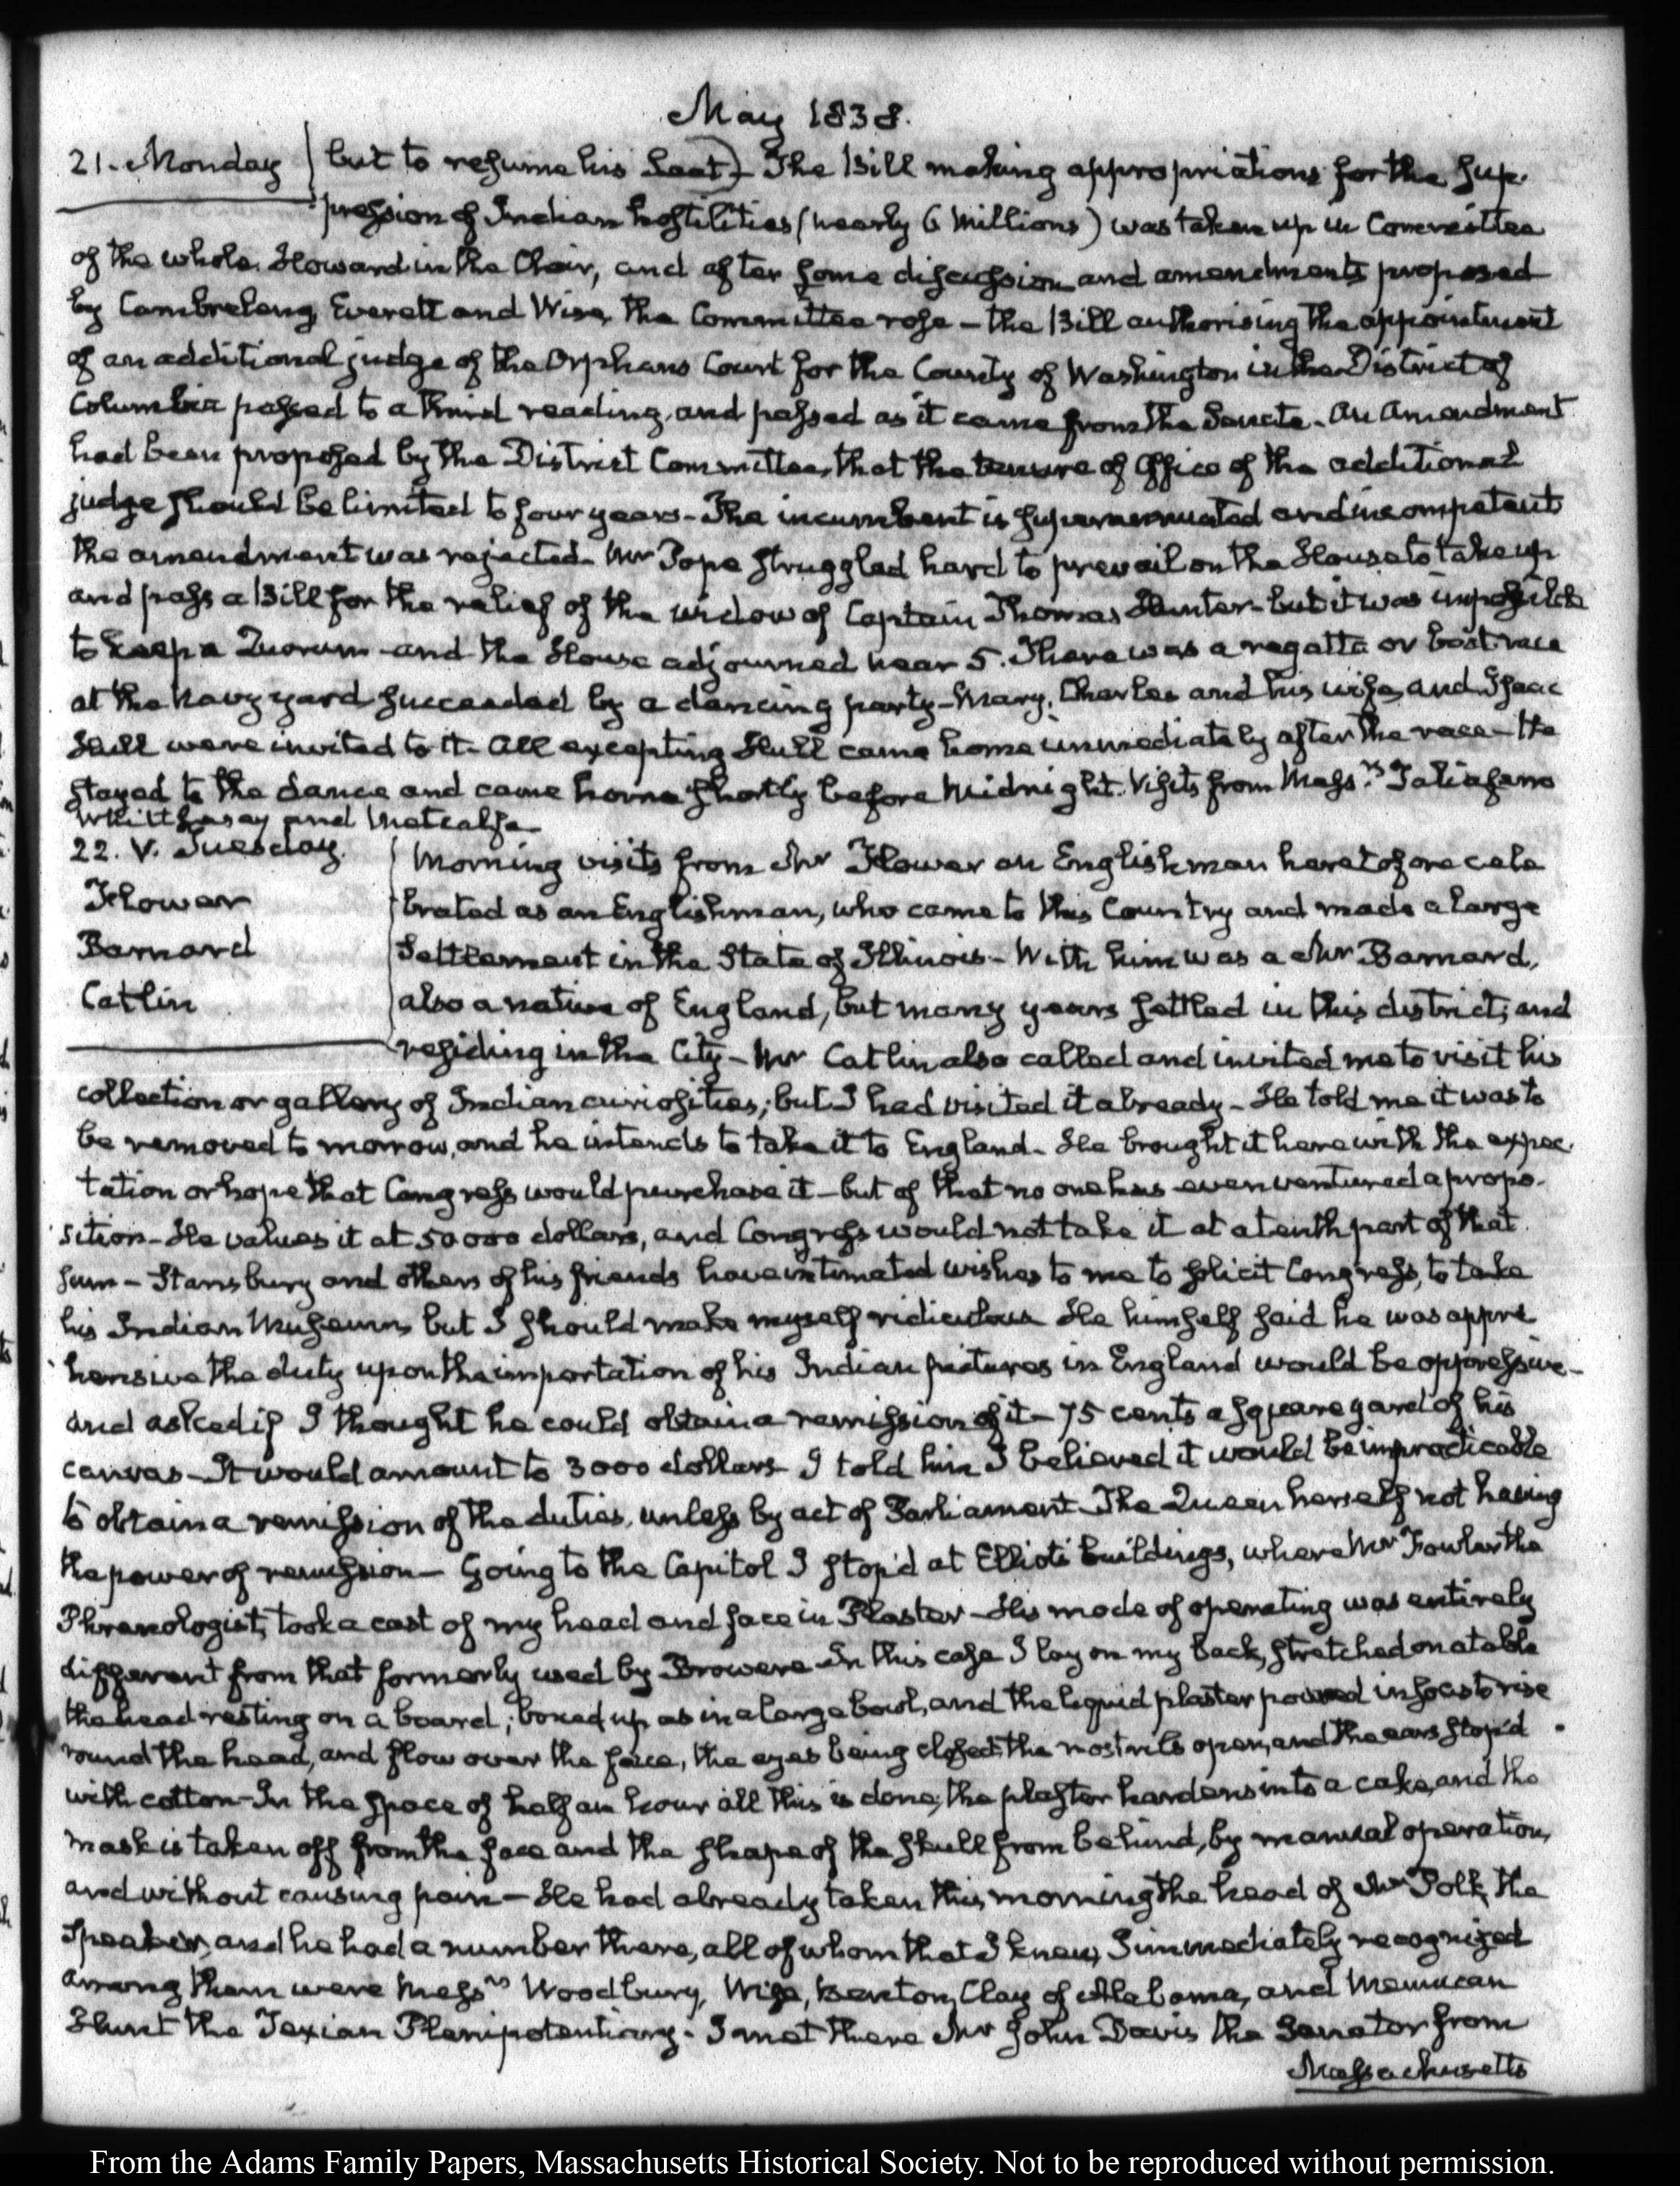 May 1838.
21. Monday but to resume his Seat) The Bill making appropriations for the sup-
pression of Indian hostilities (nearly 6 Millions) was taken up in Committee
of the whole. Howard in the Chair, and after some discussion and amendments proposed
by Cambreleng, Everett and Wise, the Committee rose — the Bill authorising the appointment
of an additional judge of the Orphans Court for the County of Washington in the District of
Columbia passed to a third reading, and passed as it came from the Senate. An Amendment
had been proposed by the District Committee, that the tenure of Office of the additional
judge should be limited to four years - The incumbent is superannuated and incompetent
the amendment was rejected. Mr Pope struggled hard to prevail on the House to take up
and pass a Bill for the relief of the widow of Captain Thomas Hunter - but it was impossible
to keep a Quorum - and the House adjourned near 5. There was a regatta or boat race
at the Navy yard succeeded by a dancing party - Mary, Charles and his wife, and Isaac
Hull were invited to it - All excepting Hull came home immediately after the race - He
stayed to the dance and came home shortly before Midnight. Visits from Messrs. Taliaferro
Whittlesey and Metcalfe
22. V. Tuesday. Morning visits from Mr Flower an Englishman heretofore cele
Flower brated as an Englishman, who came to this Country and made a large
Barnard Settlement in the State of Illinois - With him was a Mr Barnard,
Catlin also a native of England, but many years settled in this district; and
residing in the City - Mr Catlin also called and invited me to visit his
collection or gallery of Indian curiosities; but I had visited it already - He told me it was to
be removed to morrow, and he intends to take it to England. He brought it here with the expec-
tation or hope that Congress would purchase it - but of that no one has even ventured a propo-
sition - He values it at 50000 dollars, and Congress would not take it at a tenth part of that
sum - Stansbury and others of his friends have intimated wishes to me to solicit Congress, to take
his Indian Museum, but I should make myself ridiculous He himself said he was appre
hensive the duty upon the importation of his Indian pictures in England would be oppressive -
and asked if I thought he could obtain a remission of it - 75 cents a square yard of his
canvas - It would amount to 3000 dollars I told him I believed it would be impracticable
to obtain a remission of the duties, unless by act of Parliament The Queen herself not having
the power of remission - Going to the Capitol I stop'd at Elliots buildings, where Mr Fowler the
Phrenologist, took a cast of my head and face in Plaster - His mode of operating was entirely
different from that formerly used by Browere - In this case I lay on my back, stretched on a table
the head resting on a board; boxed up as in a large bowl, and the liquid plaster poured in so as to rise
round the head, and flow over the face, the eyes being closed, the nostrils open, and the ears stop'd
with cotton - In the space of half an hour all this is done; the plaster hardens into a cake, and the
mask is taken off from the face and the shape of the skull from behind, by manual operation,
and without causing pain - He had already taken this morning the head of Mr Polk, the
Speaker, and he had a number there, all of whom that I knew, I immediately recognized
among them were Messrs Woodbury, Wise, Benton, Clay of Alabama, and Memucan
Hunt the Texian Plenipotentiary. I met there Mr John Davis the Senator from
Massachusetts
From the Adams Family Papers, Massachusetts Historical Society. Not to be reproduced without permission.